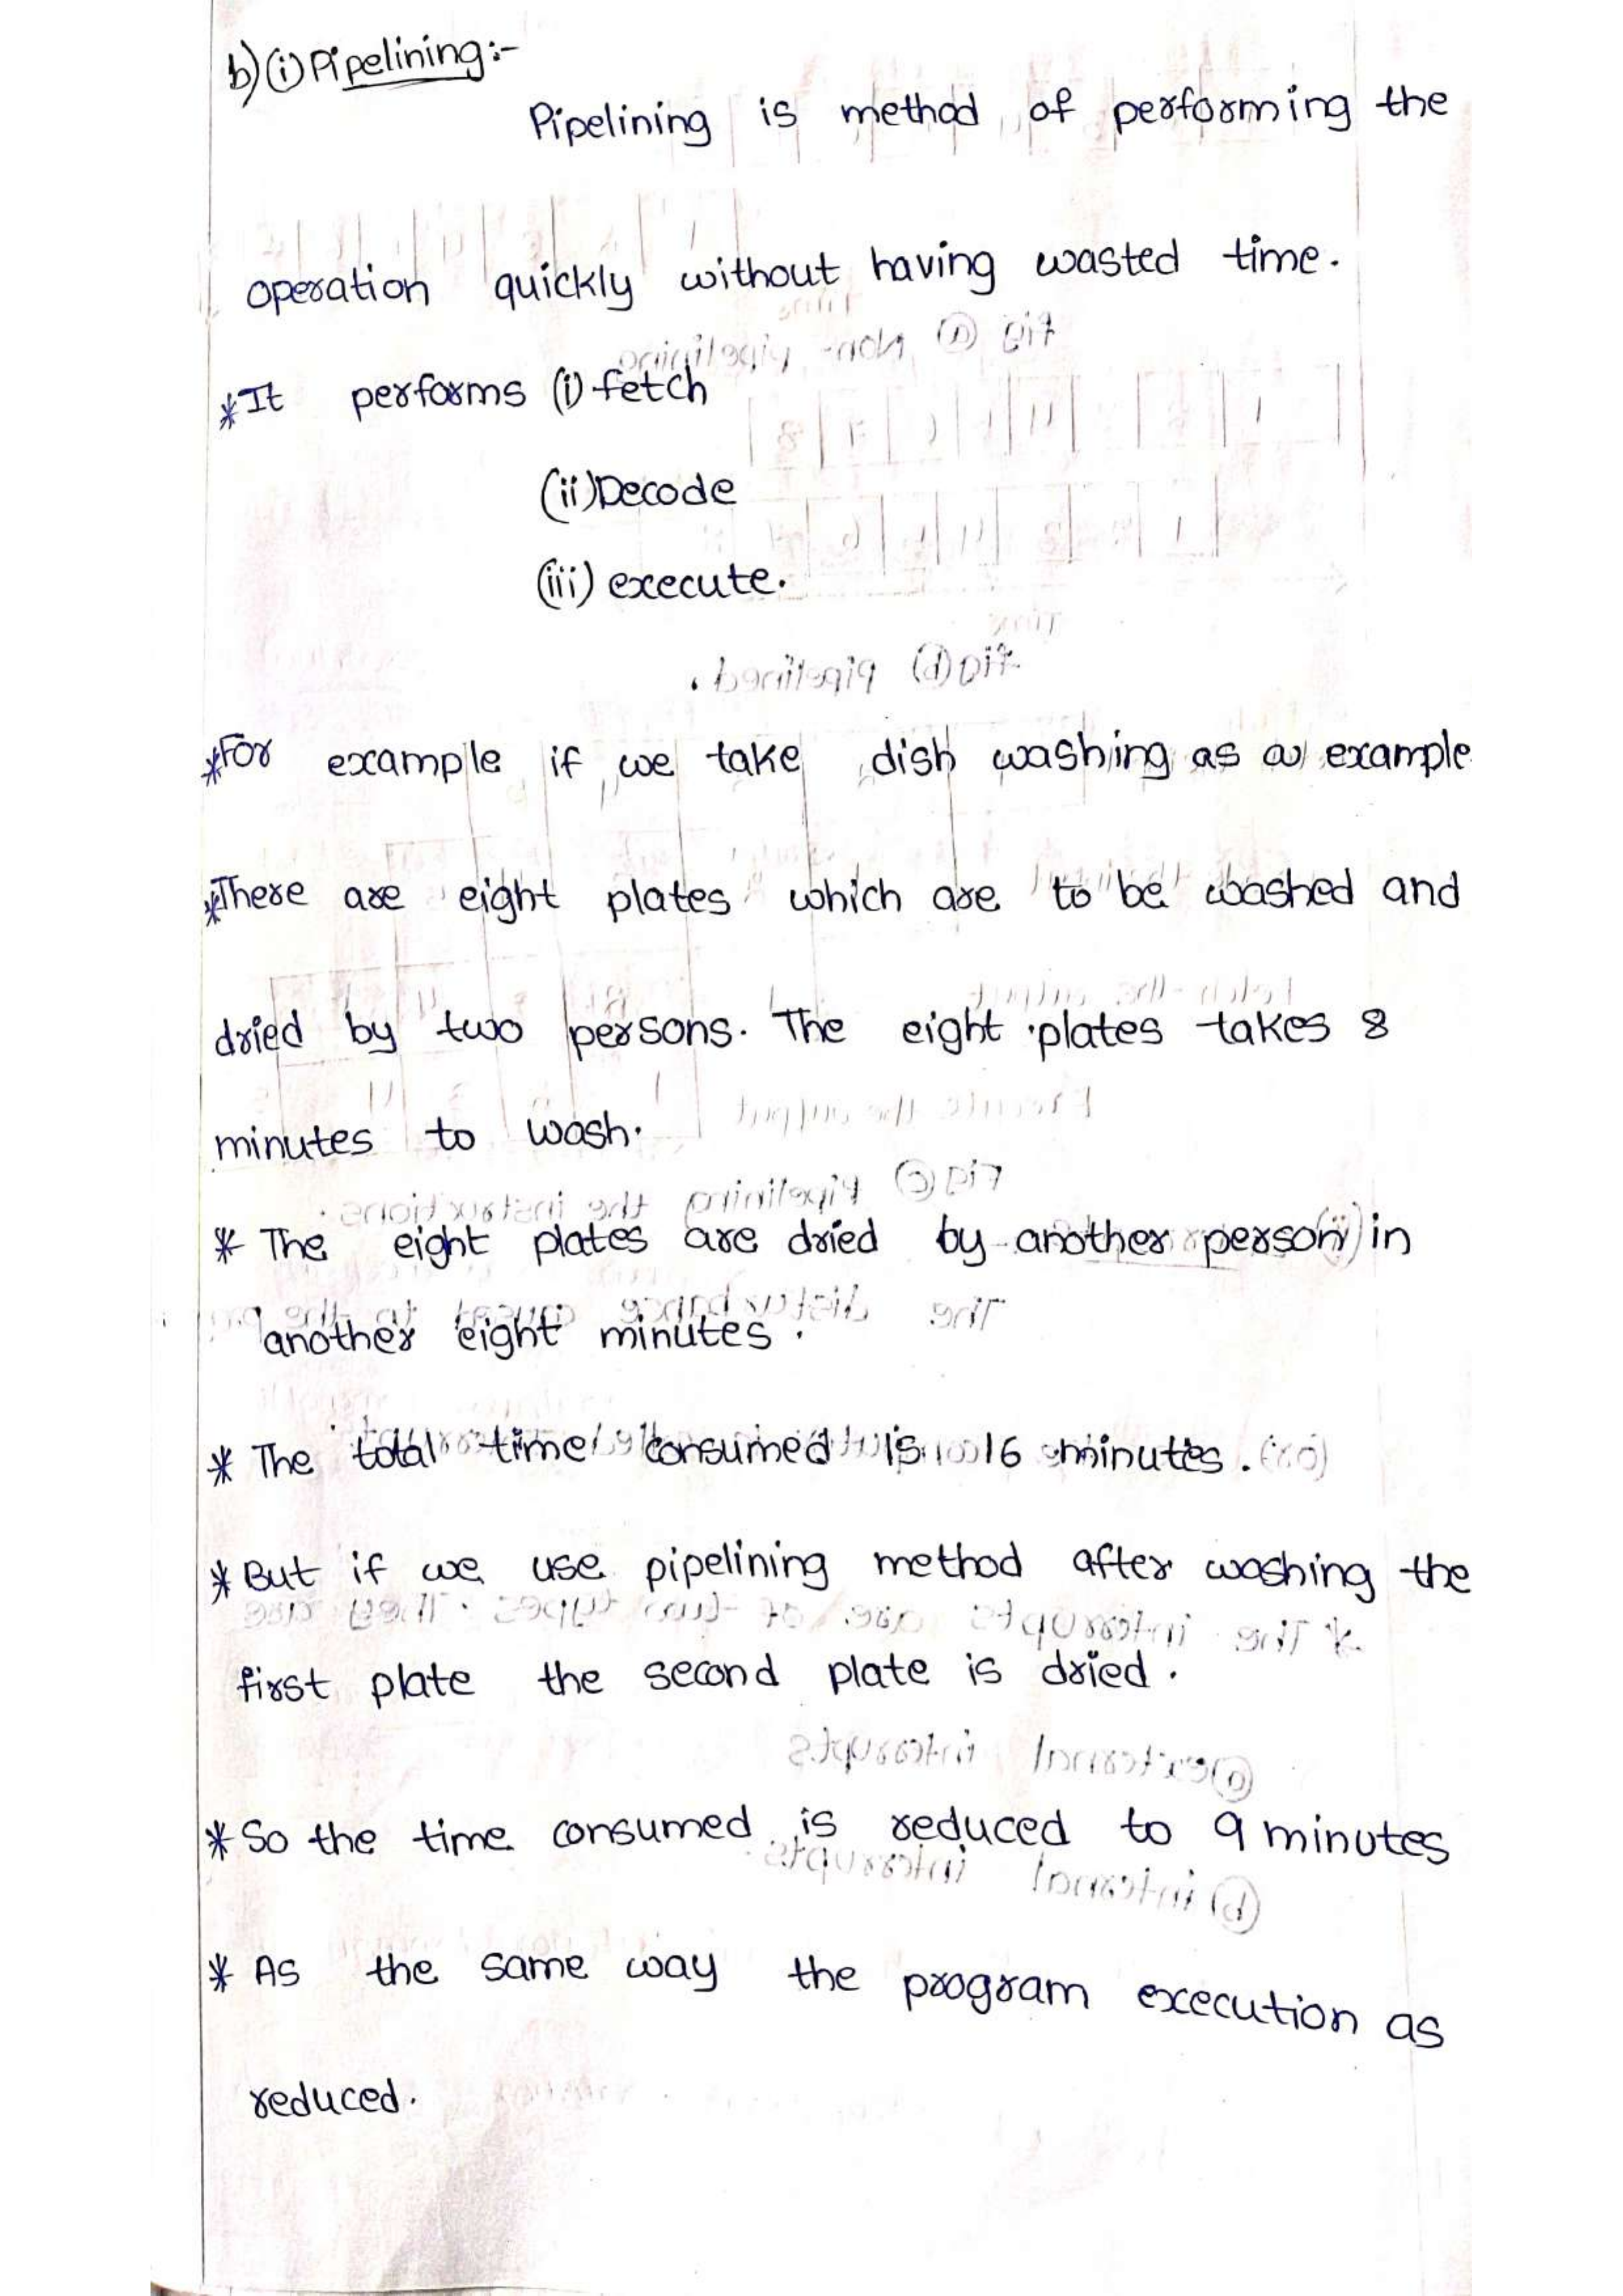 b) (i) Pipelining:-
Pipelining is method of performing the
operation quickly without having wasted time.
*It performs (i) fetch
(ii) Decode
(iii) execute.
*For example if we take dish washing as a example
*There are eight plates which are to be washed and
dried by two persons. The eight plates takes 8
minutes to wash.
* The eight plates are dried by another person in
another eight minutes.
* The total time consumed is 16 minutes.
* But if we use pipelining method after washing the
first plate the second plate is dried.
* So the time consumed is reduced to 9 minutes
* As the same way the program execution as
reduced.